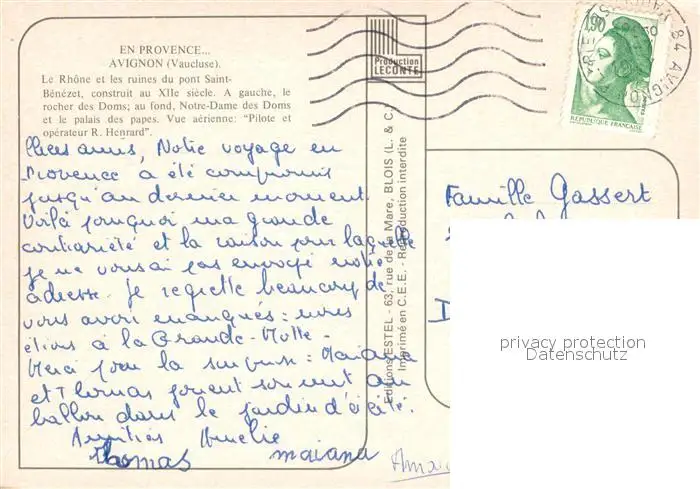 EN PROVENCE...
AVIGNON (Vaucluse).
Le Rhône et les ruines du pont Saint-
Bénézet, construit au XIIe siècle. A gauche, le
rocher des Doms; au fond, Notre-Dame des Doms
et le palais des papes. Vue aérienne: "Pilote et
opérateur R. Henrard".
Chers amis, Notre voyage en
Provence a été compromis
jusqu'au dernier moment.
Voilà pourquoi ma grande
contrariété et la raison pour laquelle
je ne vous ai pas envoyé notre
adresse. Je regrette beaucoup de
vous avoir manqués : nous
étions à la Grande-Motte.
Merci pour la surprise : Maiana
et Thomas jouent souvent au
ballon dans le jardin d'à côté.
Amitiés Amélie
Thomas maiana
Production
LECONTE
Editions ESTEL - 63, rue de la Mare, BLOIS (L. & C.)
Imprimé en C.E.E. - Reproduction interdite
1,90
REPUBLIQUE FRANÇAISE
84 AVIGNON
Famille Gassert
privacy protection
Datenschutz